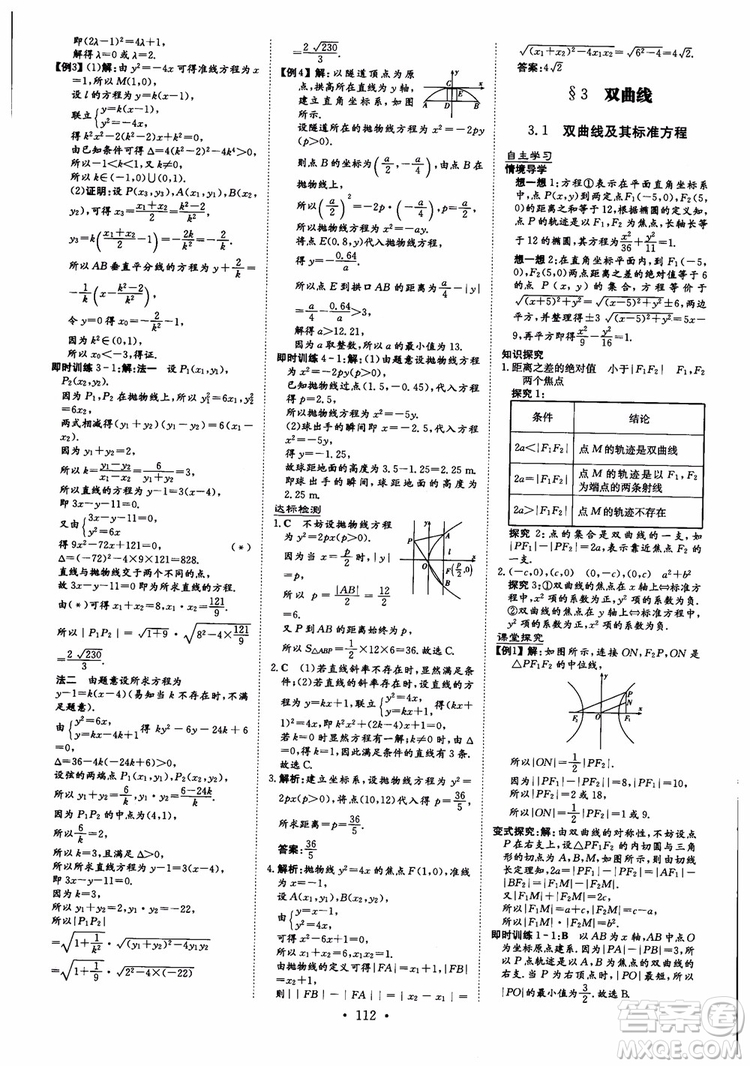 即(2λ-1)²=4λ+1,
解得λ=2.
【例3】(1)解:由y²=-4x可得准线方程为x=1,
所以M(1,0),
设l的方程为y=k(x-1),
联立{y=k(x-1), y²=-4x,
得k²x²-2(k²-2)x+k²=0,
由已知条件可得Δ=4(k²-2)²-4k⁴>0,
所以-1<k<1,又因为k=0时不合题意,
所以k∈(-1,0)∪(0,1).
(2)证明:设P(x₃,y₃),A(x₁,y₁),B(x₂,y₂),可得x₃=(x₁+x₂)/2=(k²-2)/k²,
y₃=k((x₁+x₂)/2-1)=-2k/k²=-2/k,
所以AB垂直平分线的方程为y+2/k=
-1/k(x-(k²-2)/k²).
令y=0得x₀=-2/k²-1,
因为k²∈(0,1),
所以x₀<-3,得证.
即时训练3-1:解:法一 设P₁(x₁,y₁),
P₂(x₂,y₂).
因为P₁,P₂在抛物线上,所以y₁²=6x₁,y₂²=6x₂.
两式相减得(y₁+y₂)(y₁-y₂)=6(x₁-x₂).
所以k=(y₁-y₂)/(x₁-x₂)=6/(y₁+y₂)=3,
所以直线的方程为y-1=3(x-4),
即3x-y-11=0.
又由{y²=6x, 3x-y-11=0,
得9x²-72x+121=0,(*)
Δ=(-72)²-4×9×121>0,
直线与抛物线于两个不同的点,
故3x-y-11=0即为所求直线的方程.
由(*)可得x₁+x₂=8,x₁x₂=121/9.
所以|P₁P₂|=√(1+9)·√(8²-4×121/9)
=2√230/3.
法二 由题意设所求方程为
y-1=k(x-4)(易知当k不存在时,不满足题意).
由{y²=6x, y=kx-4k+1,得ky²-6y-24k+6=0,
Δ=36-4k(-24k+6)>0.
设弦的两端点P₁(x₁,y₁),P₂(x₂,y₂),
所以y₁+y₂=6/k,y₁y₂=(6-24k)/k.
因为P₁P₂的中点为(4,1),
所以6/k=2.
所以k=3,这时Δ>0.
所以所求直线方程为y-1=3(x-4),
即3x-y-11=0.
因为k=3,
所以y₁+y₂=2,y₁y₂=-22.
所以|P₁P₂|
=√(1+1/k²)·√((y₁+y₂)²-4y₁y₂)
=√(1+1/9)·√(2²-4×(-22))
=2√230/3.
【例4】解:以隧道顶点为原点,拱高所在直线为y轴,建立直角坐标系,如图所示.
设隧道所在的抛物线方程为x²=-2py(p>0).
则点B(a/2,-a/4)在抛物线上,
所以(a/2)²=-2p·(-a/4),
所以抛物线方程为x²=-ay.
将点E(0.8,y)代入抛物线方程,得y=-0.64/a.
所以点E到拱口AB的距离为a/4-|y|=a/4-0.64/a>3,
解得a>12.21,
因为a取整数,所以a的最小值为13.
即时训练4-1:解:由题意设抛物线方程为x²=-2py(p>0),
(1)因为抛物线过点(1.5,-0.45),代入可得p=2.5.
故抛物线方程为x²=-5y.
(2)球出手的坐标为x=-1,
代入x²=-5y,得y=-0.2,
故球距地面的高度为2.45-0.2=2.25(m).
即球出手的瞬间,球距地面的高度为2.25 m.
达标检测
1.C 不妨设抛物线方程为y²=2px(p>0),依题意,l⊥x轴,且焦点F(p/2,0),
因为当x=p/2时,|y|=p,
所以p=|AB|/2=12/2=6.
又P到AB的距离始终为p,
所以S△ABP=1/2×12×6=36.故选C.
2.C (1)若直线斜率不存在时,符合条件;(2)若直线的斜率存在时,设直线为y=k(x-1),则{y²=4x, y=kx+1,得k²x²+(2k-4)x+1=0,即k²x²+(2k-4)x+1=0,当k=0时,符合题意;当k≠0时,Δ=(2k-4)²-4k²=0,得k=1.因此满足条件的直线有三条.故选C.
3.解析:建立坐标系,设抛物线方程为y²=2px(p>0),将(10,12)代入得p=36/5,
所求距离为p/2+p/2=36/5.
答案:36/5
4.解析:抛物线y²=4x的焦点F(1,0),准线为x=-1.
由{y=x-1, y²=4x,
可得x²-6x+1=0,
解得x₁+x₂=6,x₁x₂=1,
由抛物线的定义可得|FA|=x₁+1,|FB|=x₂+1,
则||FB|-|FA||=|x₁-x₂|=
√((x₁+x₂)²-4x₁x₂)=√(6²-4)=4√2.
答案:4√2
§3 双曲线
3.1 双曲线及其标准方程
自主学习
情境导学
想一想1:方程①表示在平面直角坐标系中,点P(x,y)到两定点F₁(-5,0),F₂(5,0)的距离之和等于12,根据椭圆的定义知,点P的轨迹是以F₁,F₂为焦点,长轴长等于12的椭圆,其方程为x²/36+y²/11=1.
想一想2:在直角坐标平面内,到F₁(-5,0),F₂(5,0)两点距离之差的绝对值等于6的点P(x,y)的集合,方程价于√((x+5)²+y²)-√((x-5)²+y²)=±6,两边平方,并整理得±3√((x-5)²+y²)=5x-9,再平方即可得出.
知识探究
1.距离之差的绝对值 小于|F₁F₂| F₁,F₂ 两个焦点
探究1:
条件 结论
2a<|F₁F₂| 点M的轨迹是双曲线
2a=|F₁F₂| 点M的轨迹是以F₁,F₂为端点的两条射线
2a>|F₁F₂| 点M的轨迹不存在
探究2:点的集合是双曲线的一支,如|PF₁|-|PF₂|=2a,则表示右支.
2.(-c,0),(c,0) (0,-c),(0,c) a²+b²
探究3:①双曲线的焦点在x轴上⇔标准方程中,x²项的系数为正,y²项的系数为负;②双曲线的焦点在y轴上⇔标准方程中,y²项的系数为正,x²项的系数为负.
课堂探究
【例1】解:如图,连接ON,F₂P,ON是△PF₁F₂的中位线,
所以|ON|=1/2|PF₂|.
因为||PF₁|-|PF₂||=8,|PF₁|=10,
所以|PF₂|=2或18,
所以|ON|=1/2|PF₂|=1或9.
变式探究:解:由双曲线的对称性,不妨设点P在右支上,设△PF₁F₂的内切圆与三角形的切点为A,B,M,如图,由切线长定理知|PF₁|-|PF₂|=|AF₁|-|BF₂|=|F₁M|-|F₂M|,
所以|F₁M|-|F₂M|=2a,
又|F₁M|+|F₂M|=2c,
所以|F₁M|=a+c,|F₂M|=c-a.
即时训练1-1:B 以AB为x轴,AB中点O为坐标原点建系.由|PA|-|PB|=3知P的轨迹是以A,B为焦点的双曲线的右支.当P为右顶点时,|PO|最短,所以|PO|的最小值为3/2,故选B.
·112·
答案圈